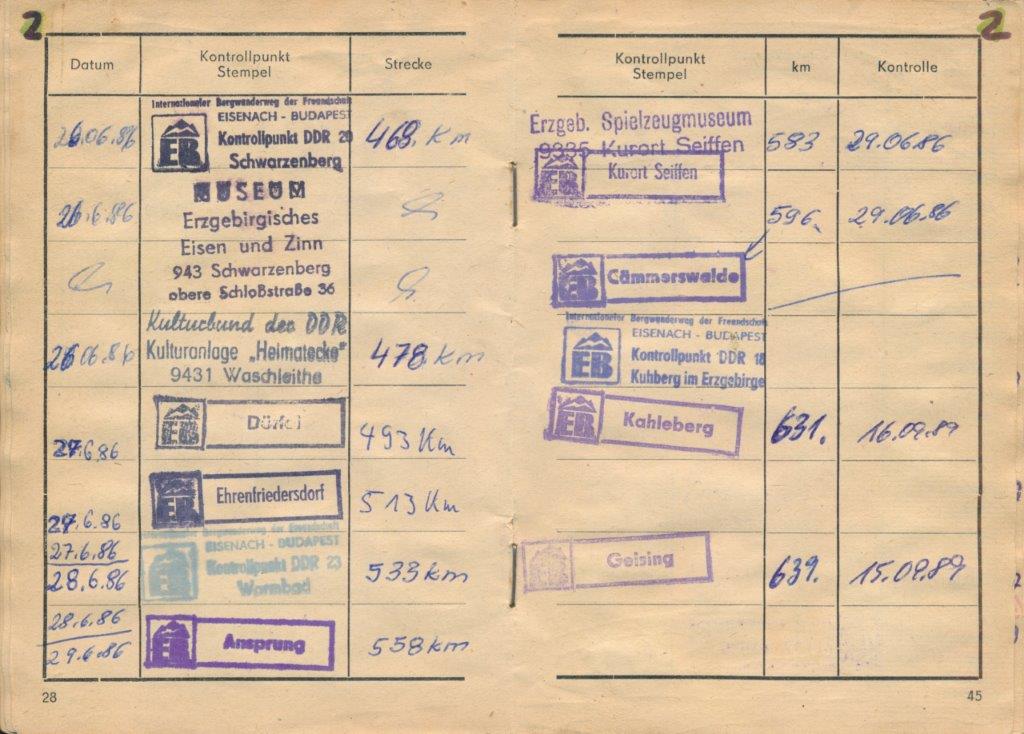 2
Datum
Kontrollpunkt
Stempel
Strecke
26.06.86
Internationaler Bergwanderweg der Freundschaft
EISENACH - BUDAPEST
EB
Kontrollpunkt DDR 20
Schwarzenberg
468. Km
26.6.86
MUSEUM
Erzgebirgisches
Eisen und Zinn
943 Schwarzenberg
obere Schloßstraße 36
26 06.86
Kulturbund der DDR
Kulturanlage „Heimatecke"
9431 Waschleithe
478 Km
27.6.86
EB
493 Km
27.6.86
EB
Ehrenfriedersdorf
513 Km
27.6.86
28.6.86
EISENACH - BUDAPEST
Kontrollpunkt DDR 23
Warmbad
533 km
28.6.86
29.6.86
EB
Ansprung
558 km
28
2
Kontrollpunkt
Stempel
km
Kontrolle
Erzgeb. Spielzeugmuseum
9335 Kurort Seiffen
EB
Kurort Seiffen
583
29.06.86
596.
29.06.86
EB
Cämmerswalde
Internationaler Bergwanderweg der Freundschaft
EISENACH - BUDAPEST
EB
Kontrollpunkt DDR 18
Kuhberg im Erzgebirge
EB
Kahleberg
631.
16.09.89
EB
Geising
639.
15.09.89
45